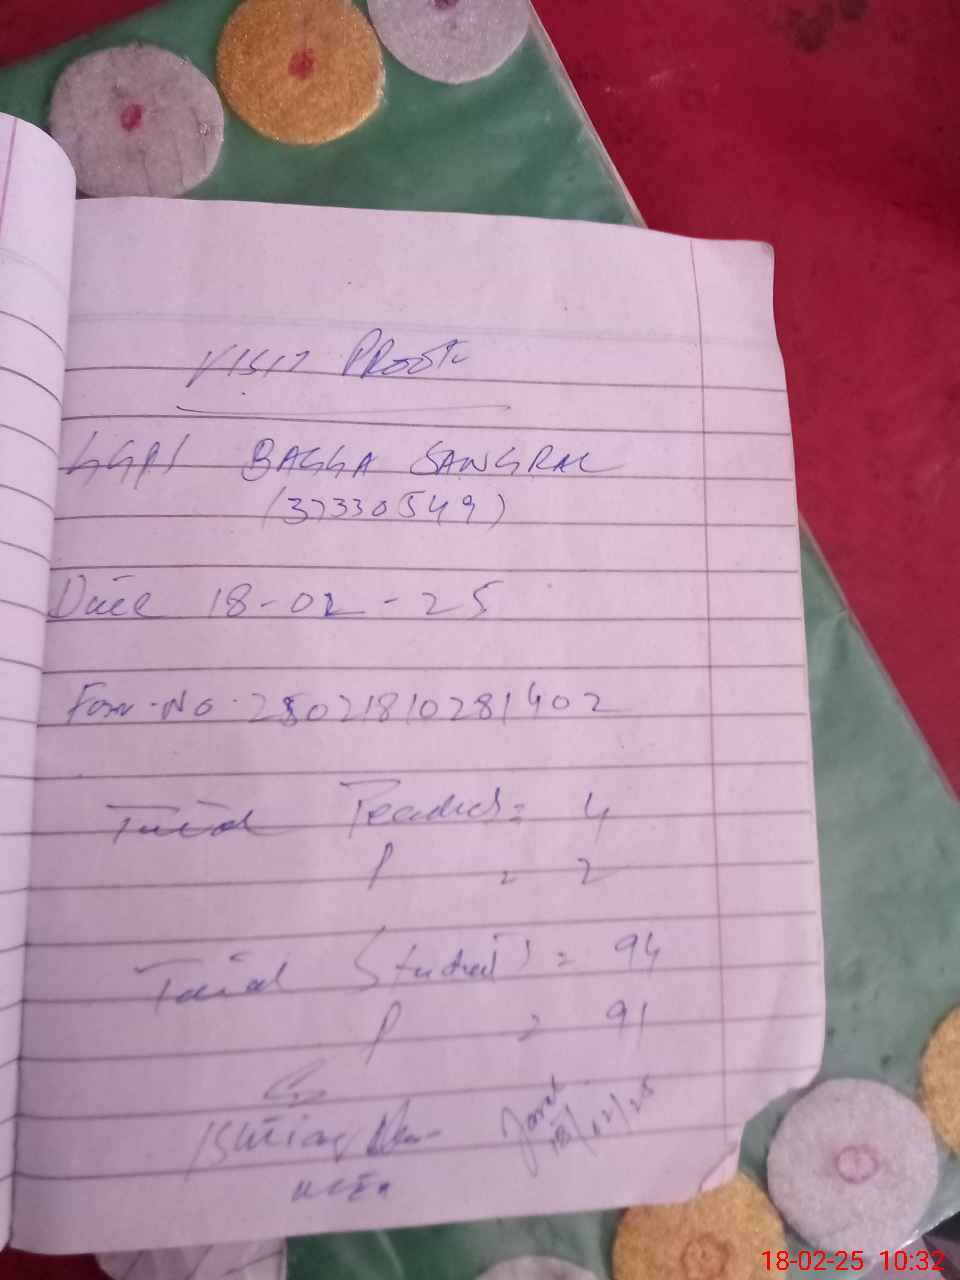 VISIT PROOF
GGPS BAGGA SANGRAL
(37330549)
Date 18-02-25
Form-No. 25021810281402
Total Teachers = 4
P = 2
Total Students = 94
P = 91
18/02/25
18-02-25 10:32